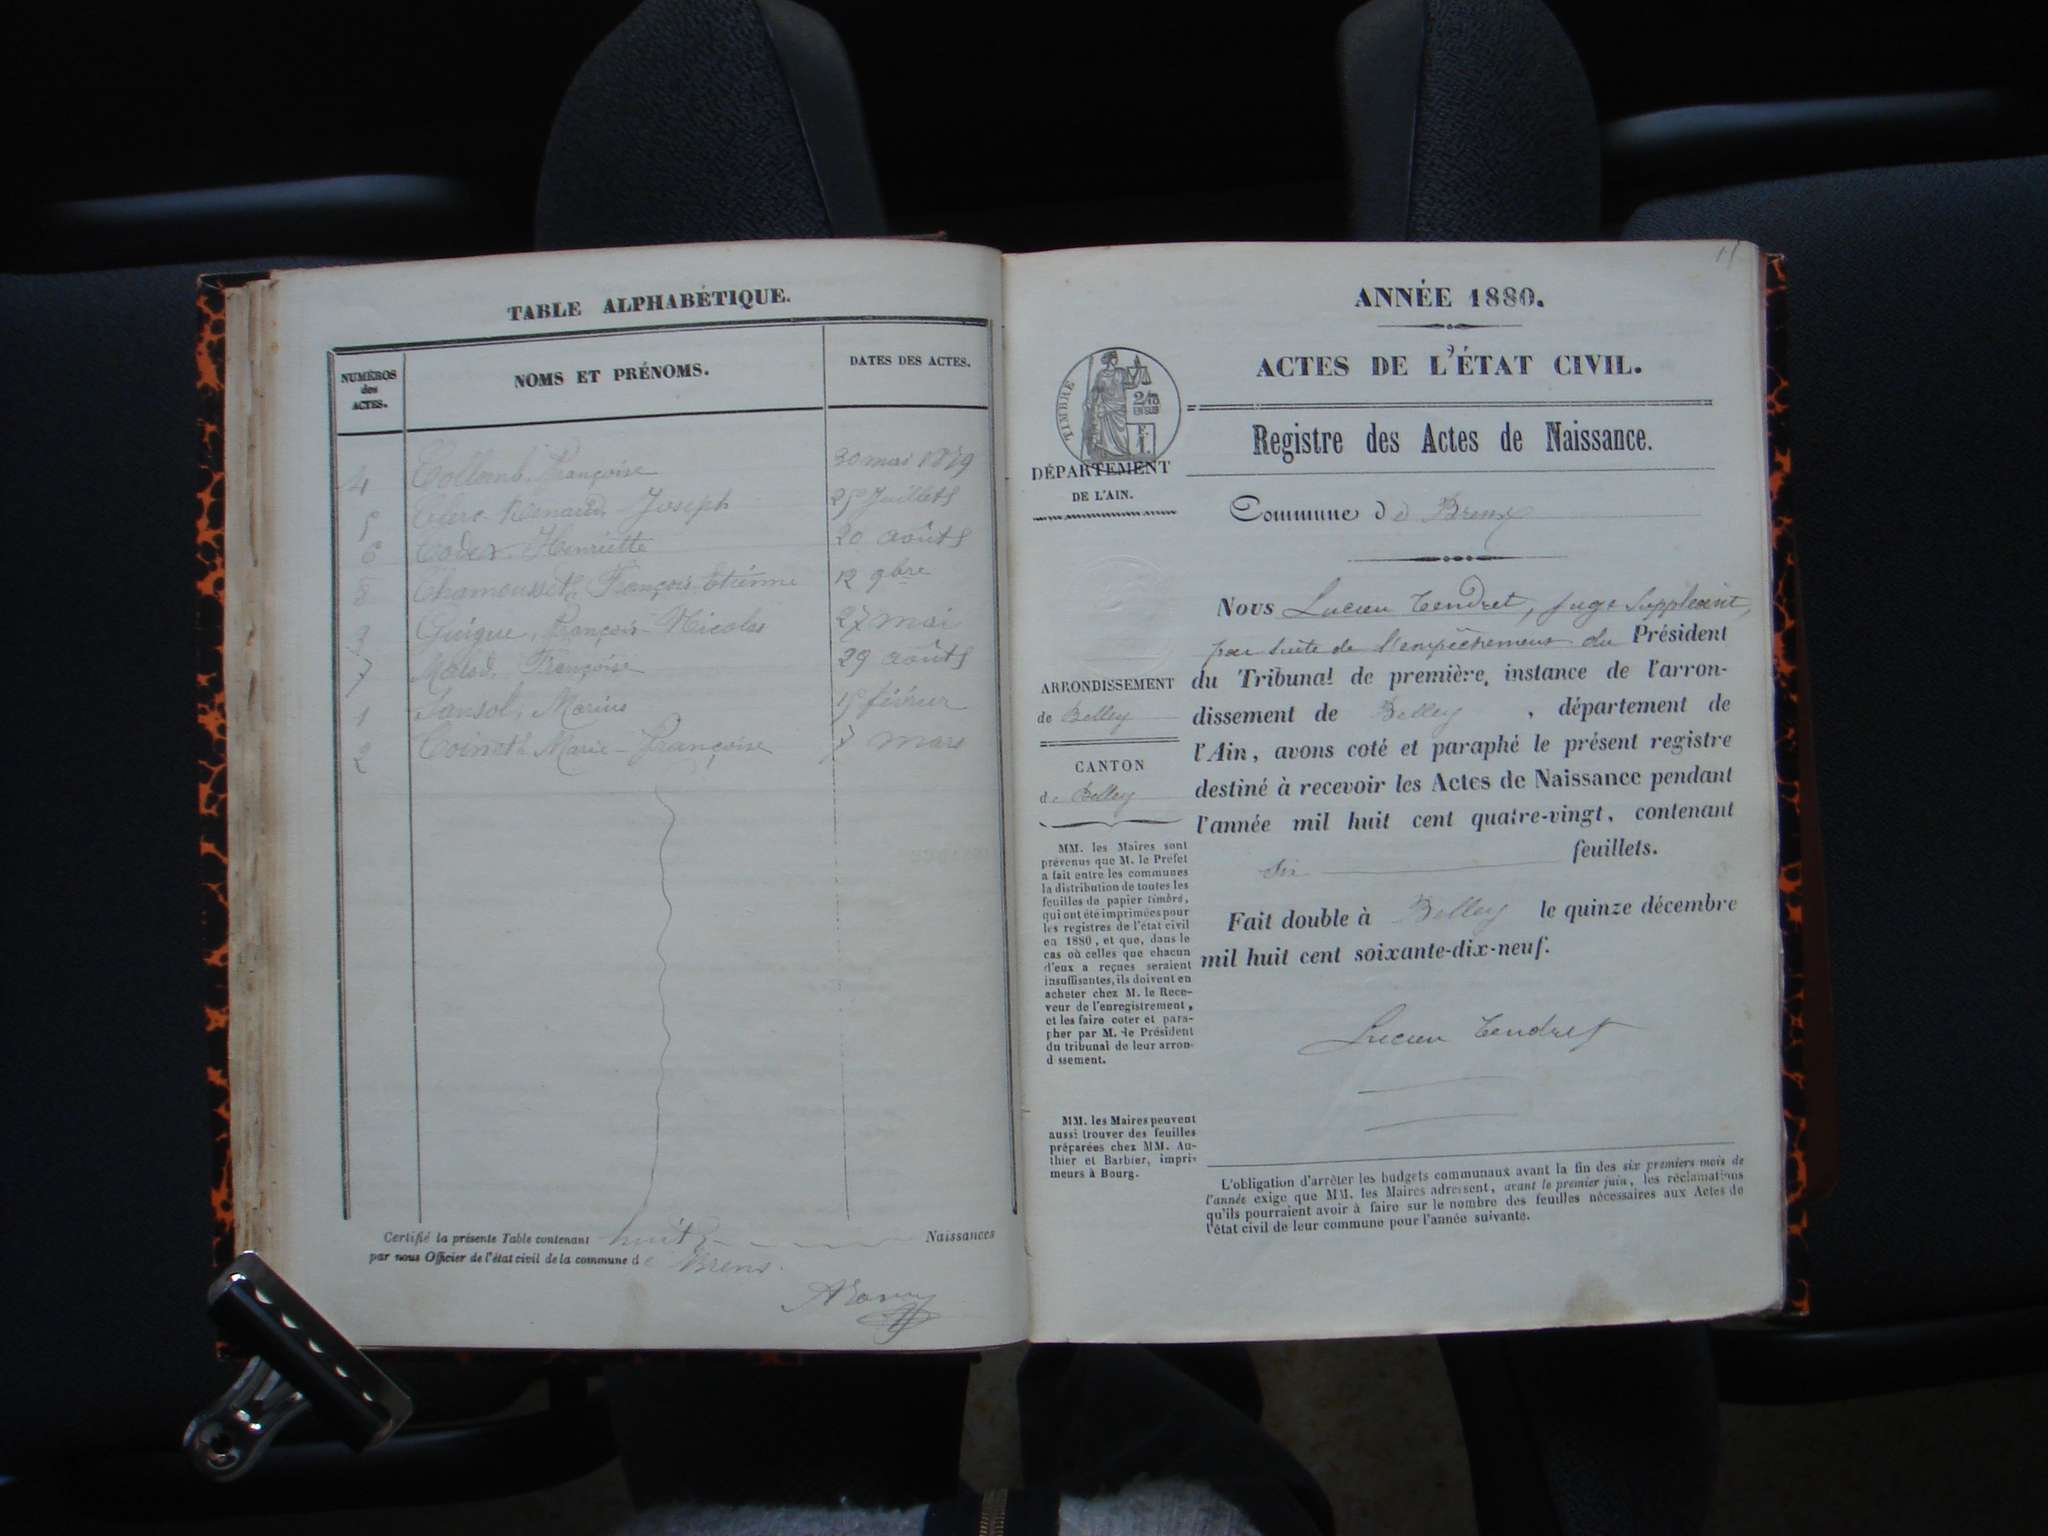 TABLE ALPHABÉTIQUE.
NUMÉROS
des
ACTES.
NOMS ET PRÉNOMS.
DATES DES ACTES.
4 Collomb, Françoise 30 mai 1879
5 Clerc-Renaud, Joseph 25 Juillet
6 Henriette 20 août
8 Chamousset, François-Etiénne 12 9bre
3 Guigue, François-Nicolas 27 mai
7 Françoise 29 août
1 Marius 15 février
2 Marie-Françoise 7 mars
Certifié la présente Table contenant huit Naissances
par nous Officier de l'état civil de la commune de Brens.
ANNÉE 1880.
ACTES DE L'ÉTAT CIVIL.
TIMBRE
2/10
EN SUS
F.
1.
Registre des Actes de Naissance.
DÉPARTEMENT
DE L'AIN.
Commune de Brens
ARRONDISSEMENT
de Belley
CANTON
de Belley
MM. les Maires sont
prévenus que M. le Préfet
a fait entre les communes
la distribution de toutes les
feuilles de papier timbré,
qui ont été imprimées pour
les registres de l'état civil
en 1880, et que, dans le
cas où celles que chacun
d'eux a reçues seraient
insuffisantes, ils doivent en
acheter chez M. le Rece-
veur de l'enregistrement,
et les faire coter et para-
pher par M. le Président
du tribunal de leur arron-
dissement.
MM. les Maires peuvent
aussi trouver des feuilles
préparées chez MM. Au-
thier et Barbier, impri-
meurs à Bourg.
Nous Lucien Tendret, juge suppléant,
par suite de l'empêchement du Président
du Tribunal de première instance de l'arron-
dissement de Belley, département de
l'Ain, avons coté et paraphé le présent registre
destiné à recevoir les Actes de Naissance pendant
l'année mil huit cent quatre-vingt, contenant
six feuillets.
Fait double à Belley le quinze décembre
mil huit cent soixante-dix-neuf.
Lucien Tendret
L'obligation d'arrêter les budgets communaux avant la fin des six premiers mois de
l'année exige que MM. les Maires adressent, avant le premier juin, les réclamations
qu'ils pourraient avoir à faire sur le nombre des feuilles nécessaires aux Actes de
l'état civil de leur commune pour l'année suivante.